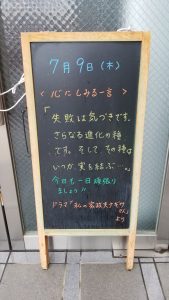 7月9日(木)
〈心にしみる一言〉
「失敗は気づきです。
さらなる進化の種
です。そして、その種は
いつか、実を結ぶ…。」
今日も一日頑張り
ましょう!!
ドラマ「私の家政夫ナギサ
さん」
より